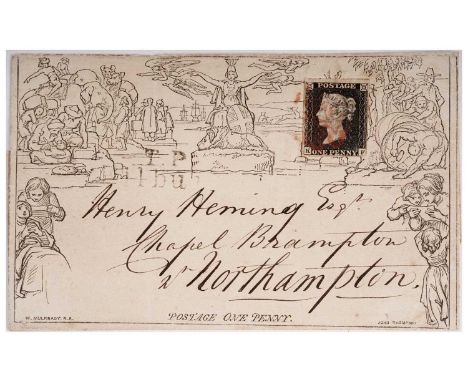 POSTAGE
ONE PENNY
T P
Henry Heming Esqr.
Chapel Brampton
Nr Northampton.
W. MULREADY, R.A.
POSTAGE ONE PENNY.
JOHN THOMPSON